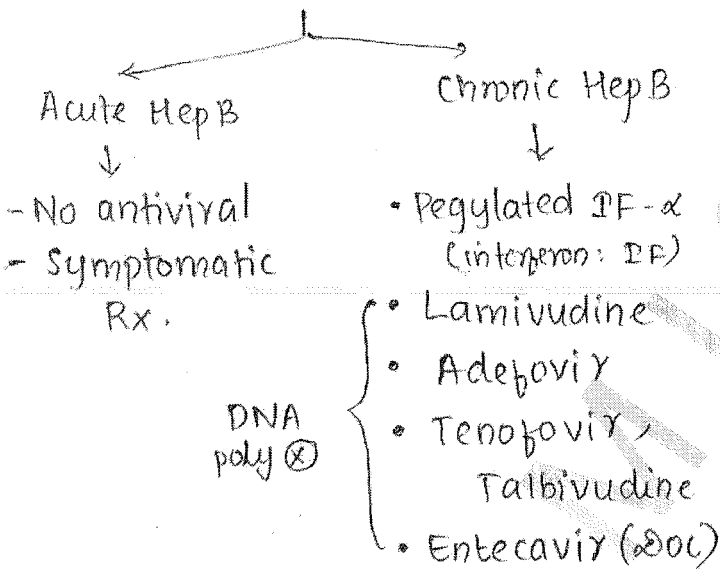 Acute HepB
↓
- No antiviral
- Symptomatic
Rx.
Chronic HepB
↓
• Pegylated IF-α
(interferon: IF)
• Lamivudine
• Adefovir
• Tenofovir,
Talbivudine
• Entecavir (DOC)
DNA
poly ⊗